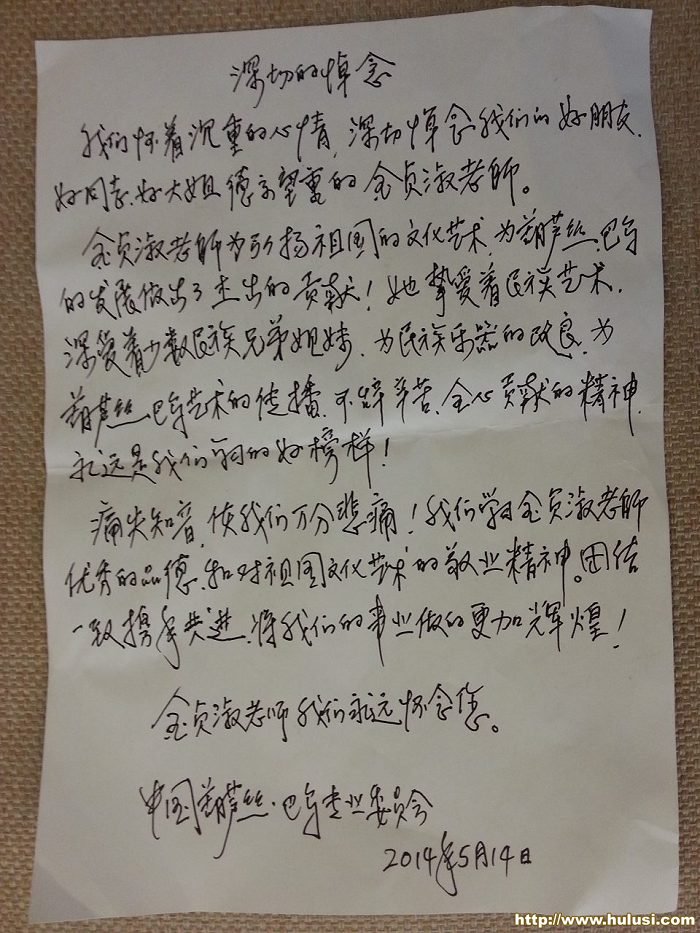 深切的悼念
我们怀着沉重的心情,深切悼念我们的好朋友、
好同事、好大姐德高望重的金贞淑老师。
金贞淑老师为弘扬祖国的文化艺术,为葫芦丝、巴乌
的发展做出了杰出的贡献!她挚爱着民族艺术,
深爱着少数民族兄弟姐妹,为民族乐器的改良,为
葫芦丝、巴乌艺术的传播,不辞辛苦、全心贡献的精神,
永远是我们学习的好榜样!
痛失知音,使我们万分悲痛!我们学习金贞淑老师
优秀的品德,和对祖国文化艺术的敬业精神。团结
一致携手共进,将我们的事业做的更加辉煌!
金贞淑老师我们永远怀念您。
中国葫芦丝、巴乌专业委员会
2014年5月14日
http://www.hulusi.com